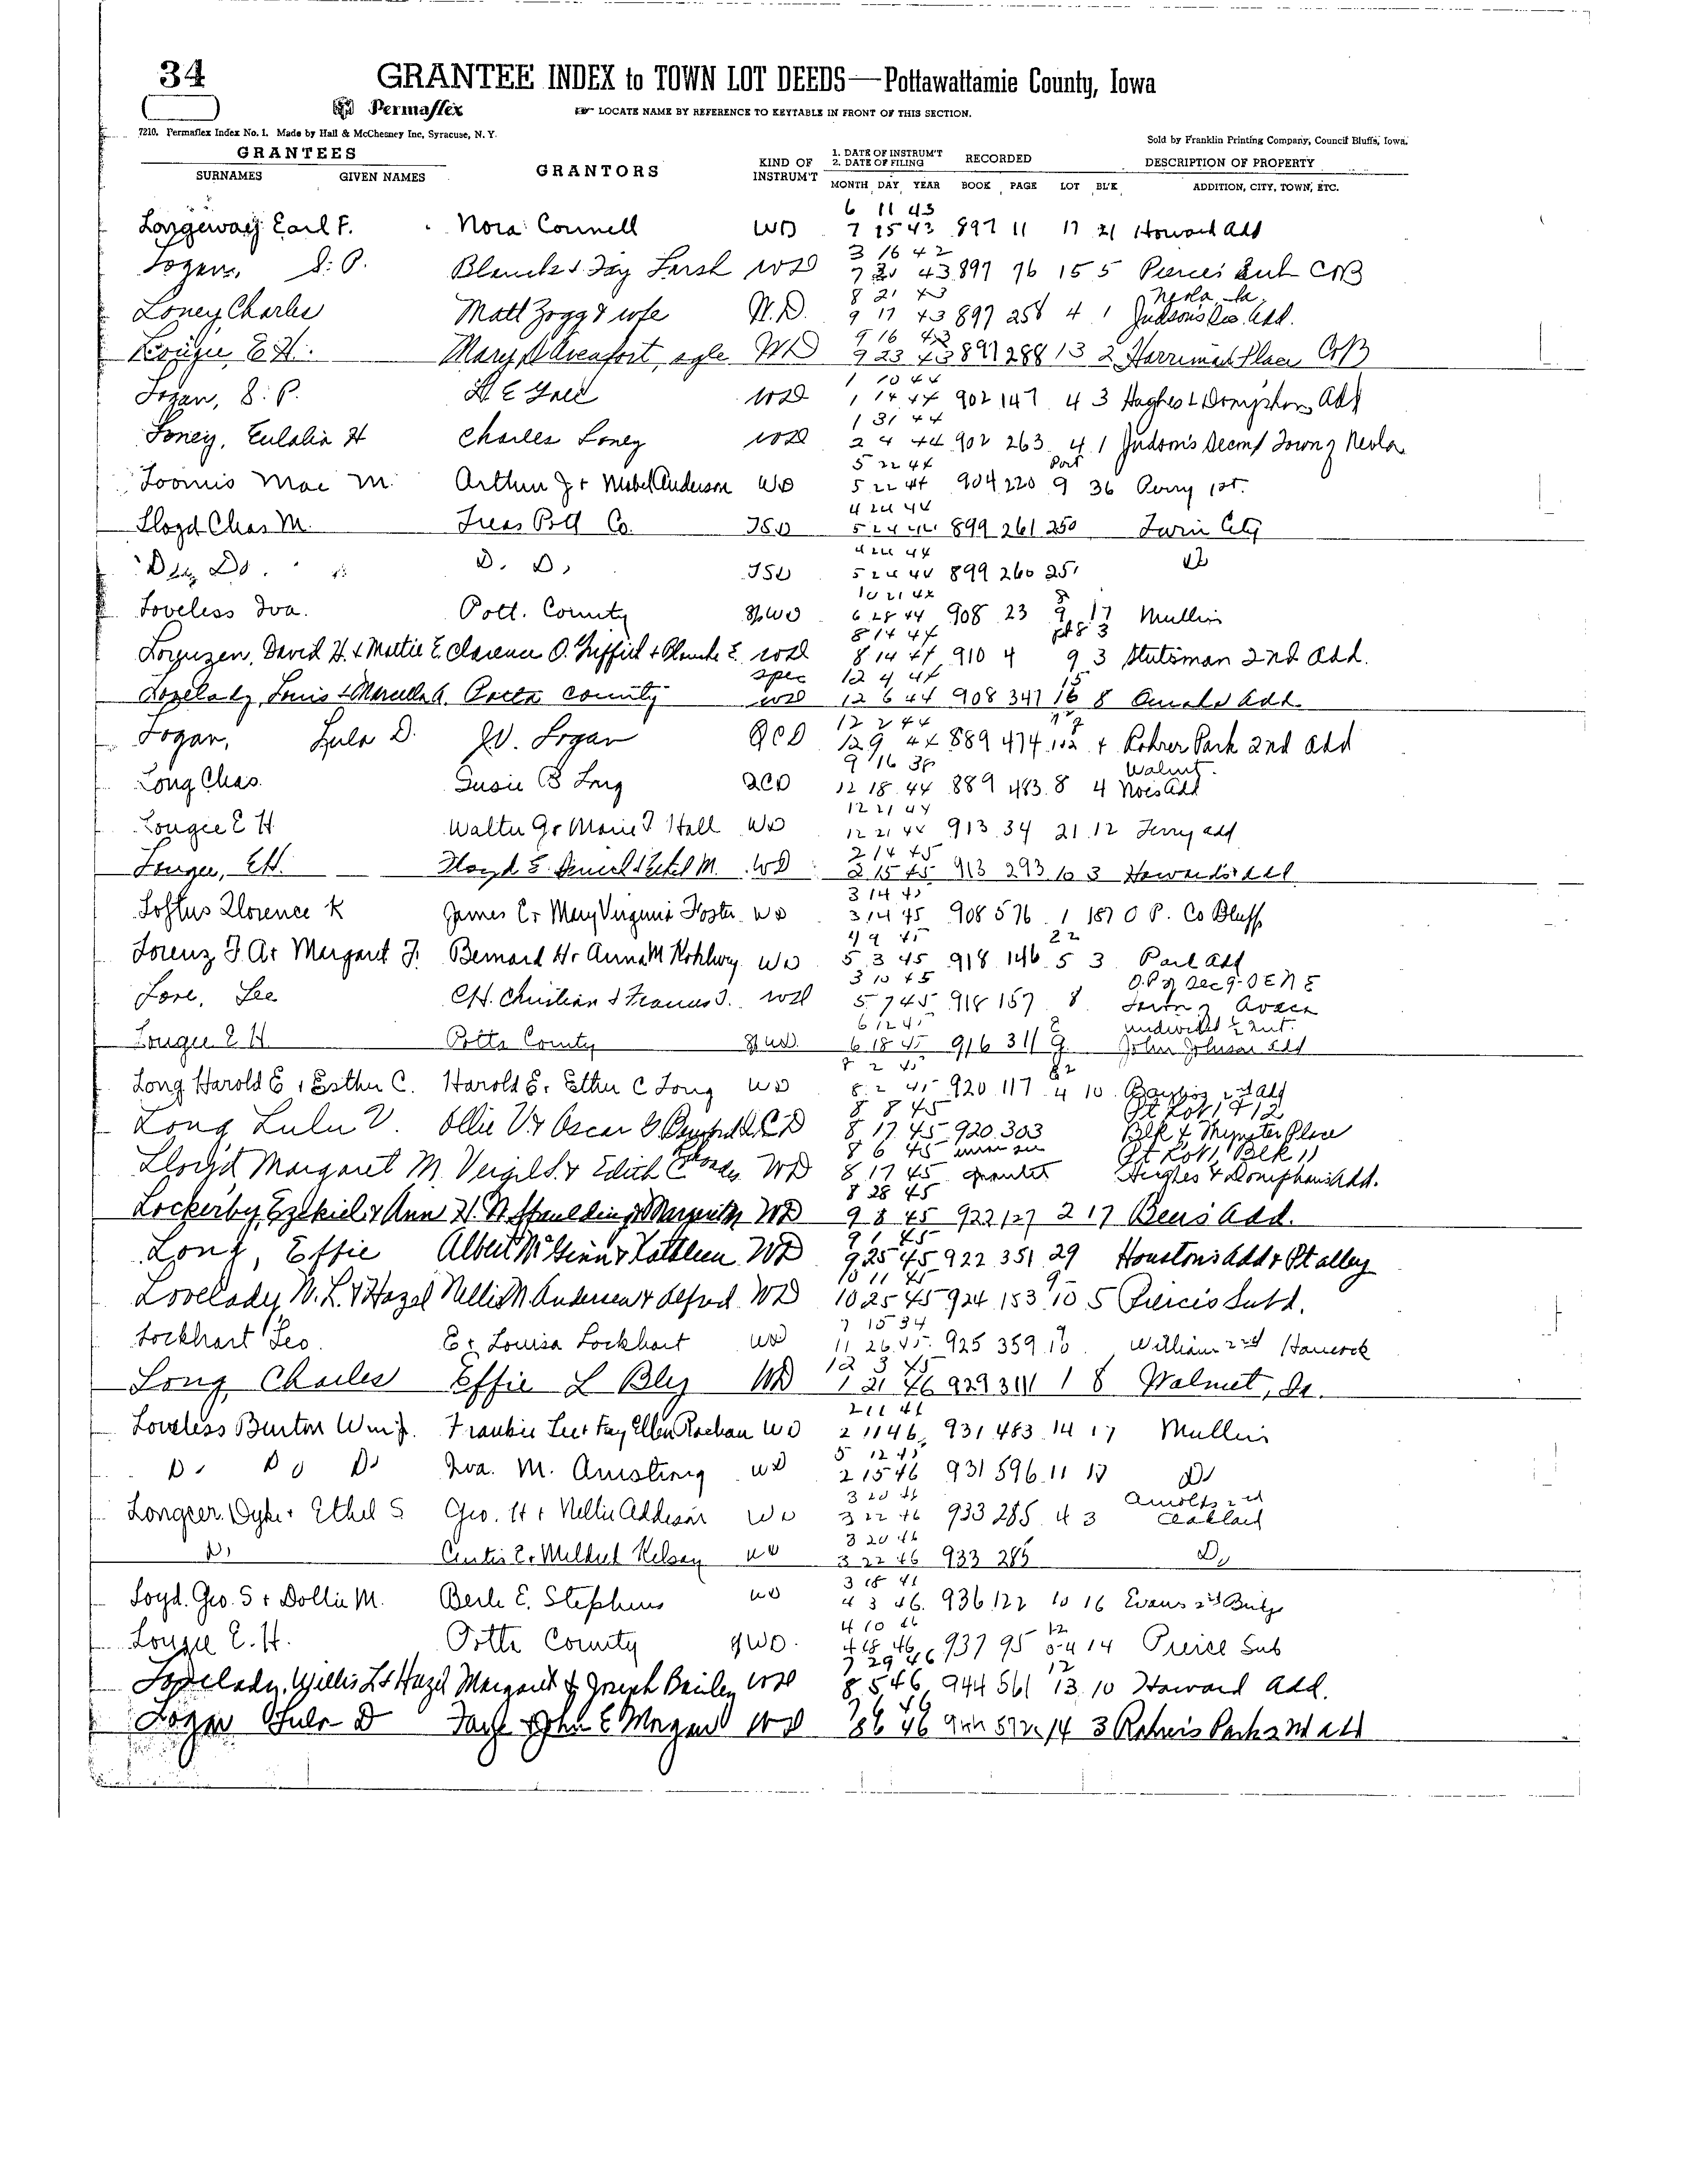 34
GRANTEE INDEX to TOWN LOT DEEDS—Pottawattamie County, Iowa
Permaflex
LOCATE NAME BY REFERENCE TO KEYTABLE IN FRONT OF THIS SECTION.
7210. Permaflex Index No. 1. Made by Hall & McChesney Inc, Syracuse, N. Y.
Sold by Franklin Printing Company, Council Bluffs, Iowa.
GRANTEES GRANTORS KIND OF INSTRUM'T 1. DATE OF INSTRUM'T 2. DATE OF FILING RECORDED DESCRIPTION OF PROPERTY
SURNAMES GIVEN NAMES MONTH DAY YEAR BOOK PAGE LOT BL'K ADDITION, CITY, TOWN, ETC.
6 11 43
Longeway Earl F. Nora Connell WD 7 15 43 897 11 17 21 Howard Add
3 16 42
Logan, S. P. Blanche & Fay WD 7 43 897 76 15 5 Pierces Sub CB
8 21 43 Neola, Ia.
Loney Charles Matt Zogg & wife W.D. 9 17 43 897 258 4 1 Judson's Add.
9 16 43
Lougee E H. Mary Davenport, sgle WD 9 23 43 897 288 13 2 Harriman Place CB
1 10 44
Logan, S. P. WD 1 14 44 902 147 4 3 Hughes & Doniphans Add
1 31 44
Loney, Eulalia H Charles Loney WD 2 4 44 902 263 4 1 Judson's Second Town of Neola
5 22 44 Part
Loomis Mae M. Arthur J + Mabel Anderson WD 5 22 44 904 220 9 36 Perry 1st.
4 24 44
Lloyd Chas M. Treas Pott Co. TSD 5 24 44 899 261 250 Twin City
4 24 44
Do Do. D. D. TSD 5 24 44 899 260 251 D
10 21 44 8
Loveless Iva. Pott. County SpWD 6 28 44 908 23 9 17 Mullin
8 14 44 pt 8 3
Lorenzen, David H. & Mattie E. Clarence O. Griffith + Blanche E. WD 8 14 44 910 4 9 3 Stutsman 2nd Add.
spec 12 4 44 15
Lovelady Louis & Marcella A. Potta County WD 12 6 44 908 347 16 8 Omaha Add.
12 2 44
Logan, Lula D. J.V. Logan QCD 12 9 44 889 474 Rohrer Park 2nd Add
9 16 38 Walnut.
Long Chas. Susie B Long QCD 12 18 44 889 483 8 4 Noes Add
12 21 44
Lougee E H. Walter G + Marie Hall WD 12 21 44 913 34 21 12 Terry add
2 14 45
Lougee, E.H. Floyd E. WD 2 15 45 913 293 10 3 Howards Add
3 14 45
Loftus Florence K James E + Mary Virginia Foster WD 3 14 45 908 576 1 187 O P. Co Bluff
4 9 45 22
Lorenz J. A + Margaret J. Bernard H + Anna M WD 5 3 45 918 146 5 3 Park Add
3 10 45 O.P. of Sec 9-OENE
Love, Lee C.H. Christian & Frances J. WD 5 7 45 918 157 8 Town of Avoca
6 12 45 8 undivided ½ Int.
Lougee E H Potta County SpWD 6 18 45 916 311 9 John Johnson Add
8 2 45
Long Harold E + Esther C. Harold E + Esther C Long WD 8 2 45 920 117 4 10 2nd Add
8 8 45 Pt Lot 1 & 12
Long Lulu V. Ollie V & Oscar G Q.C.D 8 17 45 920 303 Blk 4 Mynster Place
8 6 45 Pt Lot 1, Blk 11
Lloyd Margaret M. Vergil S. & Edith C WD 8 17 45 grantee Hughes & Doniphans Add.
8 28 45
Lockerby, Ezekiel & Ann H. N. Spaulding & Margarite WD 9 8 45 922 127 2 17 Beers Add.
9 1 45
Long, Effie Albert McGinn & Kathleen WD 9 25 45 922 351 29 Houston's Add & Pt alley
10 11 45 9
Lovelady W. L. & Hazel Nellie M. Andersen & Alfred WD 10 25 45 924 153 10 5 Pierces Subd.
7 15 34
Lockhart Leo. E + Louisa Lockhart WD 11 26 45 925 359 10 William 2nd Hancock
12 3 45
Long, Charles Effie L Bly WD 1 21 46 929 311 1 8 Walnut, Ia.
2 11 46
Loveless Burton Wm J. Frankie Lee + Fay Ellen WD 2 11 46 931 483 14 17 Mullin
5 12 45
D. Do D. Iva. M. Armstrong WD 2 15 46 931 596 11 17 D
3 20 46 Arnolds 2nd
Longeer. Dyke + Ethel S Geo. H + Nellie Addison WD 3 22 46 933 285 4 3 Oakland
3 20 46
D. Curtis E + Mildred Kelsey WD 3 22 46 933 285 D.
3 18 46
Loyd. Geo. S + Dollie M. Berle E. Stephens WD 4 3 46 936 122 10 16 Evans 2nd Bridge
4 10 46 12
Lougee E. H. Potta County SpWD. 4 18 46 937 95 14 Pierce Sub
7 29 46 12
Lovelady, Willis L & Hazel Margaret & Joseph Bailey WD 8 5 46 944 561 13 10 Howard Add.
Logan Lula D John E Morgan WD 8 6 46 944 572 14 3 Rohrers Park 2nd Add